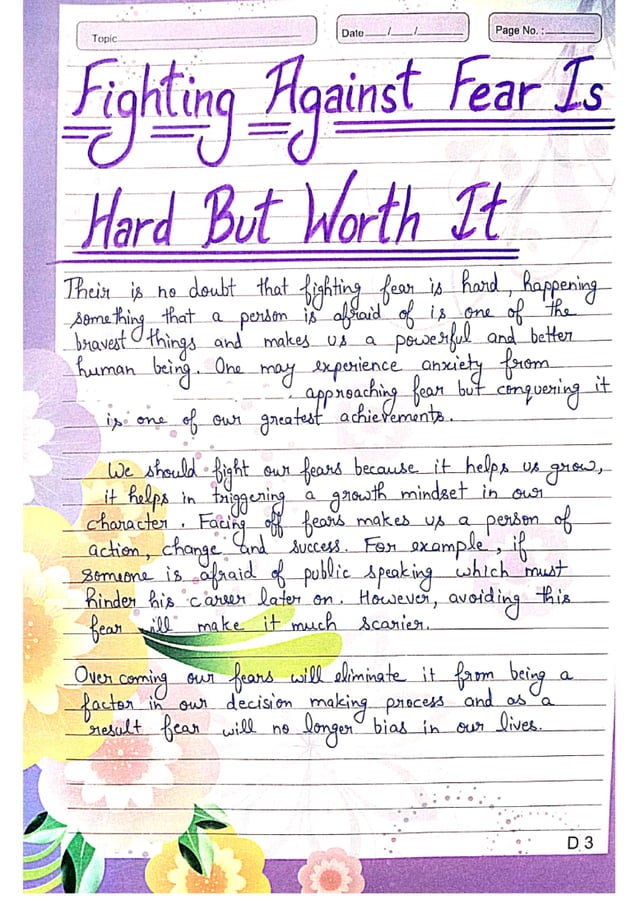 Topic
Date / /
Page No. :
Fighting Against Fear Is
Hard But Worth It
Their is no doubt that fighting fear is hard, happening
something that a person is afraid of is one of the
bravest things and makes us a powerful and better
human being. One may experience anxiety from
approaching fear but conquering it
is one of our greatest achievements.
We should fight our fears because it helps us grow,
it helps in triggering a growth mindset in our
character. Facing off fears makes us a person of
action, change and success. For example, if
someone is afraid of public speaking which must
hinder his career later on. However, avoiding this
fear ill make it much scarier.
Over coming our fears will eliminate it from being a
factor in our decision making process and as a
result fear will no longer bias in our lives.
D 3